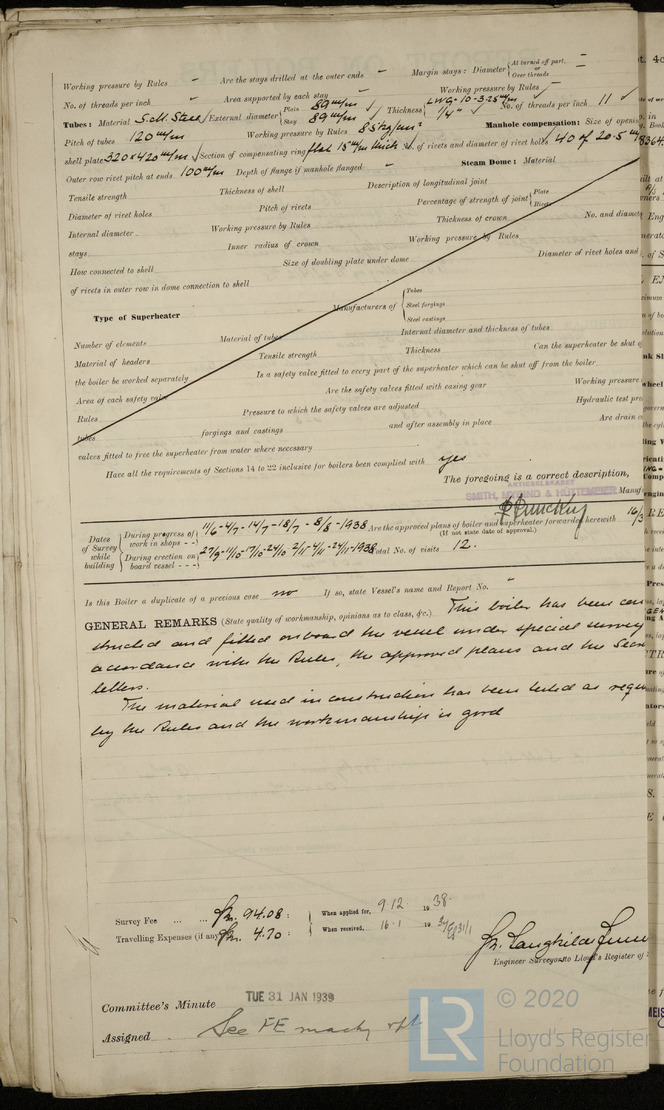 Working pressure by Rules - Are the stays drilled at the outer ends - Margin stays: Diameter { At turned off part, - or Over threads
No. of threads per inch - Area supported by each stay - Working pressure by Rules -
Tubes: Material S.M. Steel External diameter { Plain 89 m/m Stay 89 m/m Thickness { LWG-10-3.25 m/m 1/4" No. of threads per inch 11
Pitch of tubes 120 m/m Working pressure by Rules Manhole compensation: Size of opening in
shell plate 320 x 420 m/m Section of compensating ring flat 15 m/m thick of rivets and diameter of rivet holes 40 of 20.5 m/m
Outer row rivet pitch at ends 100 m/m Depth of flange if manhole flanged - Steam Dome: Material
Tensile strength Thickness of shell Description of longitudinal joint
Diameter of rivet holes Pitch of rivets Percentage of strength of joint { Plate Rivets
Internal diameter Working pressure by Rules Thickness of crown No. and diamete
stays Inner radius of crown Working pressure by Rules
How connected to shell Size of doubling plate under dome Diameter of rivet holes and
of rivets in outer row in dome connection to shell
Type of Superheater Manufacturers of { Tubes Steel forgings Steel castings
Number of elements Material of tubes Internal diameter and thickness of tubes
Material of headers Tensile strength Thickness Can the superheater be shut o
the boiler be worked separately Is a safety valve fitted to every part of the superheater which can be shut off from the boiler
Area of each safety valve Are the safety valves fitted with easing gear Working pressure
Rules Pressure to which the safety valves are adjusted Hydraulic test pre
tubes forgings and castings and after assembly in place Are drain c
valves fitted to free the superheater from water where necessary
Have all the requirements of Sections 14 to 22 inclusive for boilers been complied with yes
The foregoing is a correct description,
AKTIESELSKABET
SMITH, MYGIND & HUTTEMEIER Manuf
Dates of Survey while building { During progress of work in shops - - 11/6-4/7-14/7-18/7-8/8-1938 Are the approved plans of boiler and superheater forwarded herewith
(If not state date of approval.)
During erection on board vessel - - - 27/9-11/10-17/10-24/10 2/11-4/11-24/11-1938 Total No. of visits 12.
Is this Boiler a duplicate of a previous case no If so, state Vessel's name and Report No. -
GENERAL REMARKS (State quality of workmanship, opinions as to class, &c.) This boiler has been con
structed and fitted onboard the vessel under special survey
accordance with the Rules, the approved plans and the Secre
letters.
The material used in construction has been tested as requ
by the Rules and the workmanship is good
Survey Fee ... ... Kr. 94.08 : When applied for, 9.12. 1938.
Travelling Expenses (if any) Kr. 4.70 : When received, 16.1 19
Engineer Surveyor to Lloyd's Register of
Committee's Minute TUE 31 JAN 1939
Assigned See FE machy rpt
LR © 2020
Lloyd's Register
Foundation